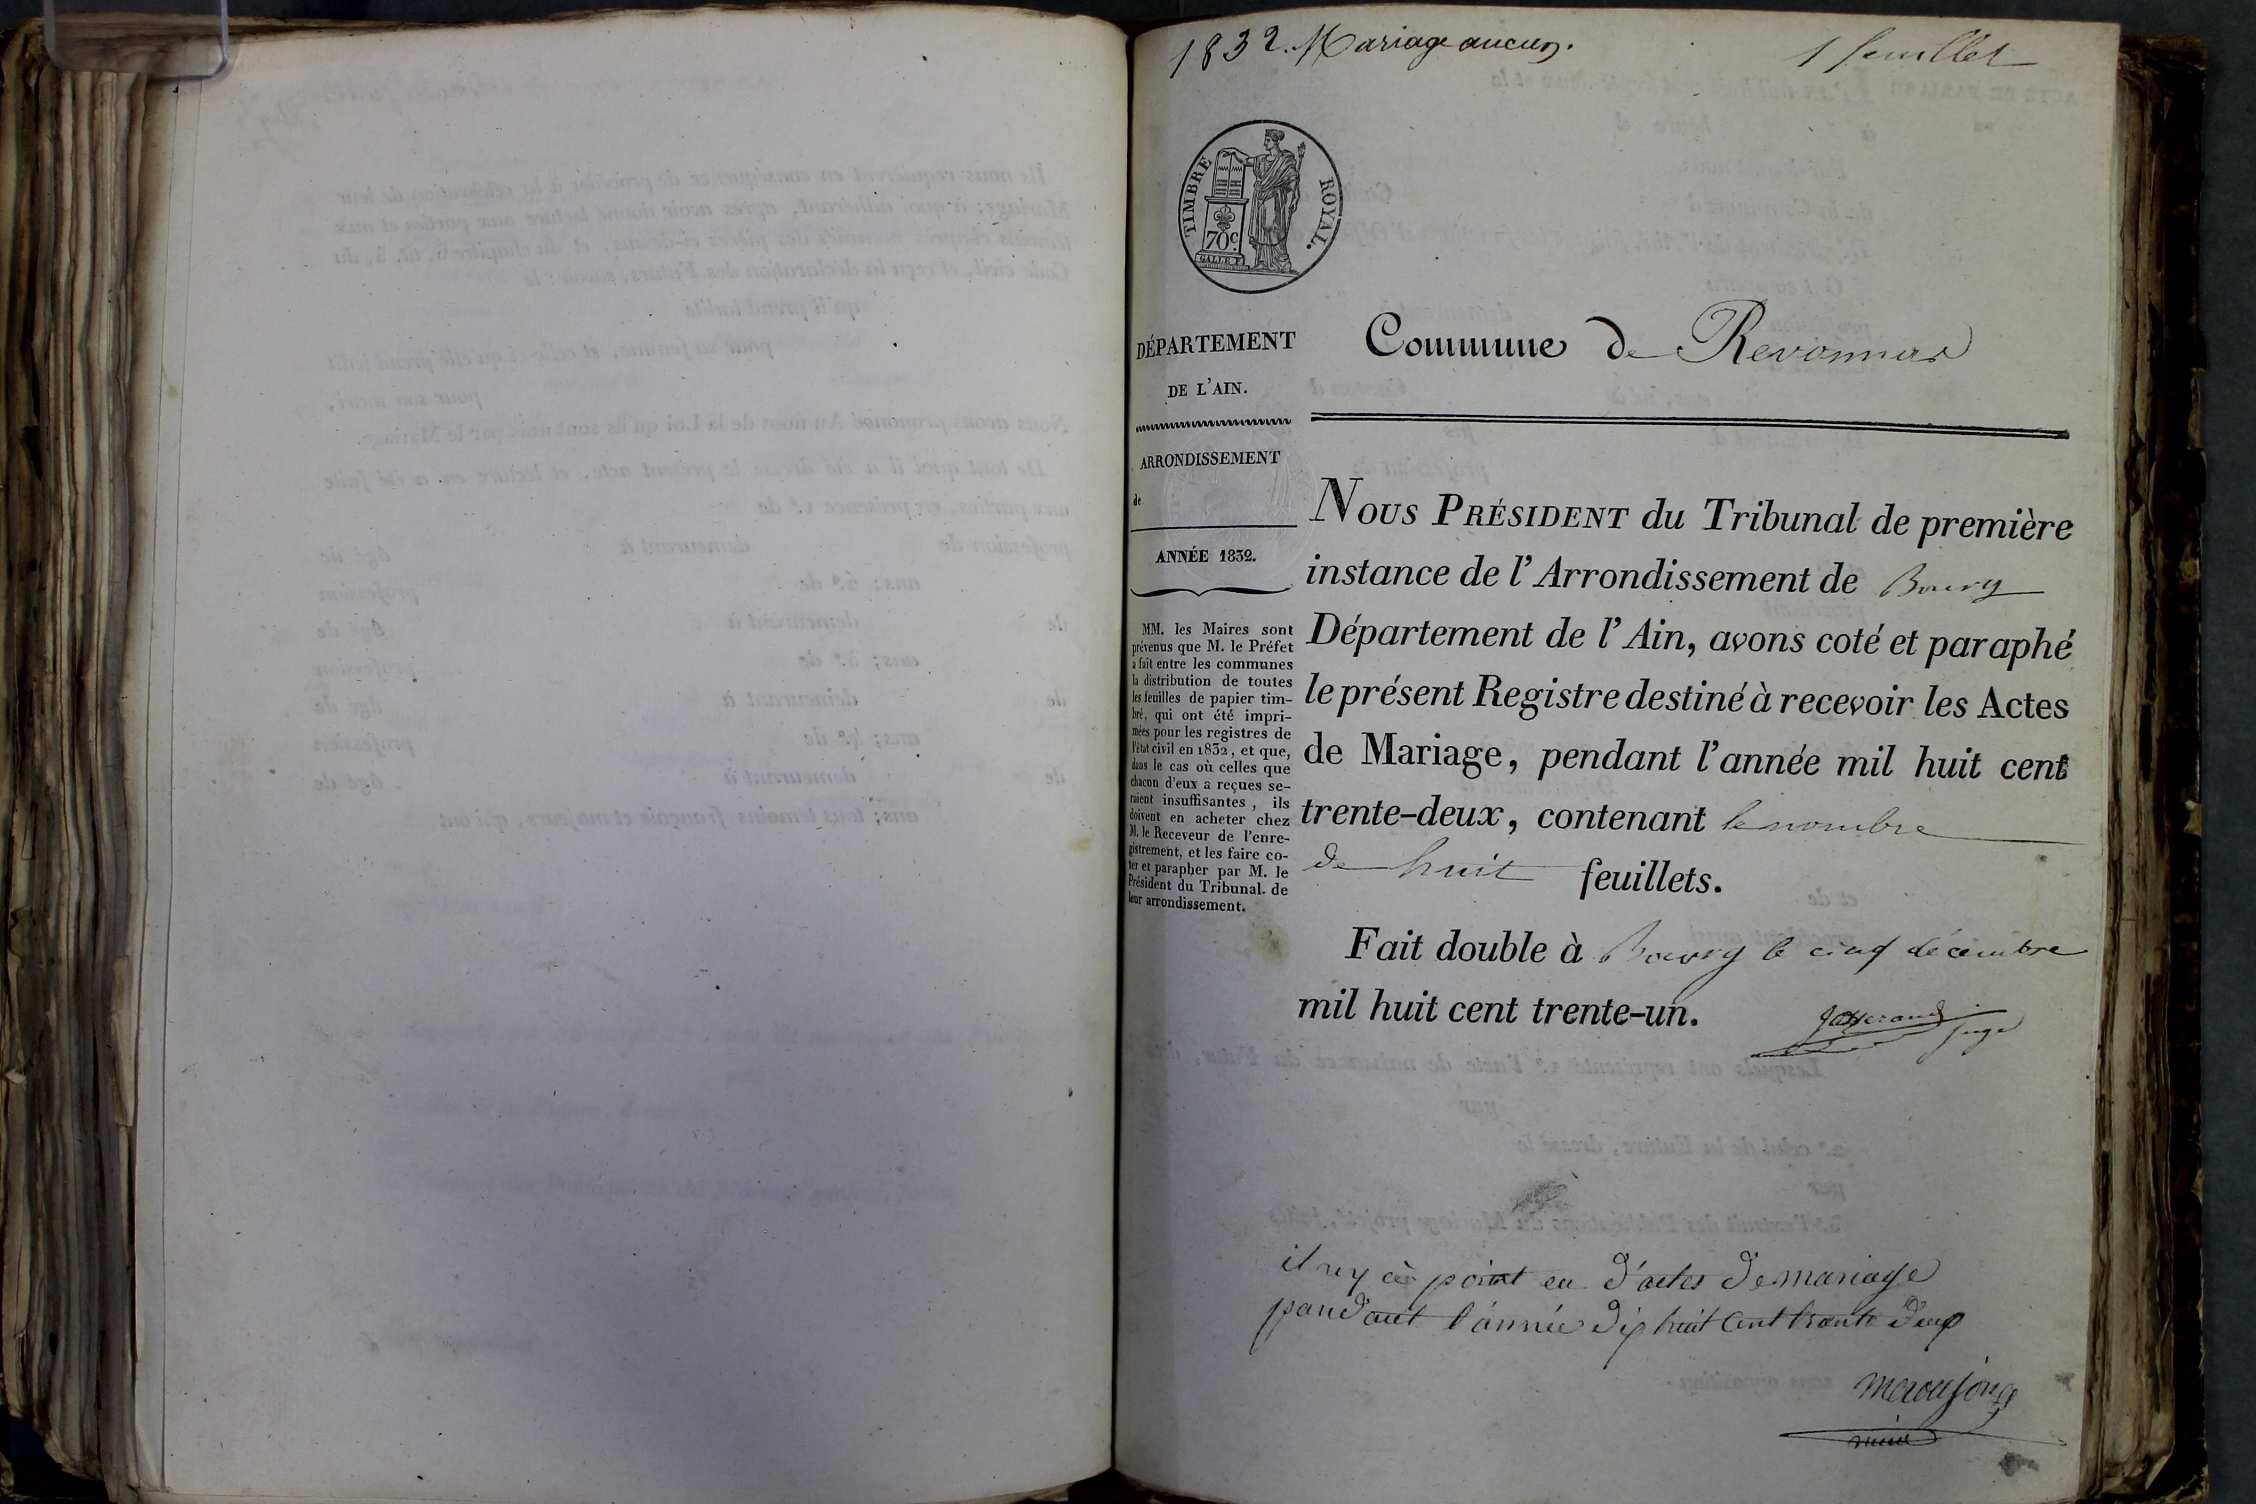 1832. Mariage aucun.
1 feuillet
TIMBRE ROYAL.
70c.
GALLE F.
DÉPARTEMENT
DE L'AIN.
ARRONDISSEMENT
de
ANNÉE 1832.
MM. les Maires sont
prévenus que M. le Préfet
a fait entre les communes
la distribution de toutes
les feuilles de papier tim-
bré, qui ont été impri-
mées pour les registres de
l'état civil en 1832, et que,
dans le cas où celles que
chacun d'eux a reçues se-
raient insuffisantes, ils
doivent en acheter chez
M. le Receveur de l'enre-
gistrement, et les faire co-
ter et parapher par M. le
Président du Tribunal de
leur arrondissement.
Commune de Revonnas
NOUS PRÉSIDENT du Tribunal de première
instance de l'Arrondissement de Bourg
Département de l'Ain, avons coté et paraphé
le présent Registre destiné à recevoir les Actes
de Mariage, pendant l'année mil huit cent
trente-deux, contenant le nombre
de huit feuillets.
Fait double à Bourg le cinq décembre
mil huit cent trente-un.
juge
il ny à point eu d'actes de mariage
pandant l'année dix huit cent trante deux